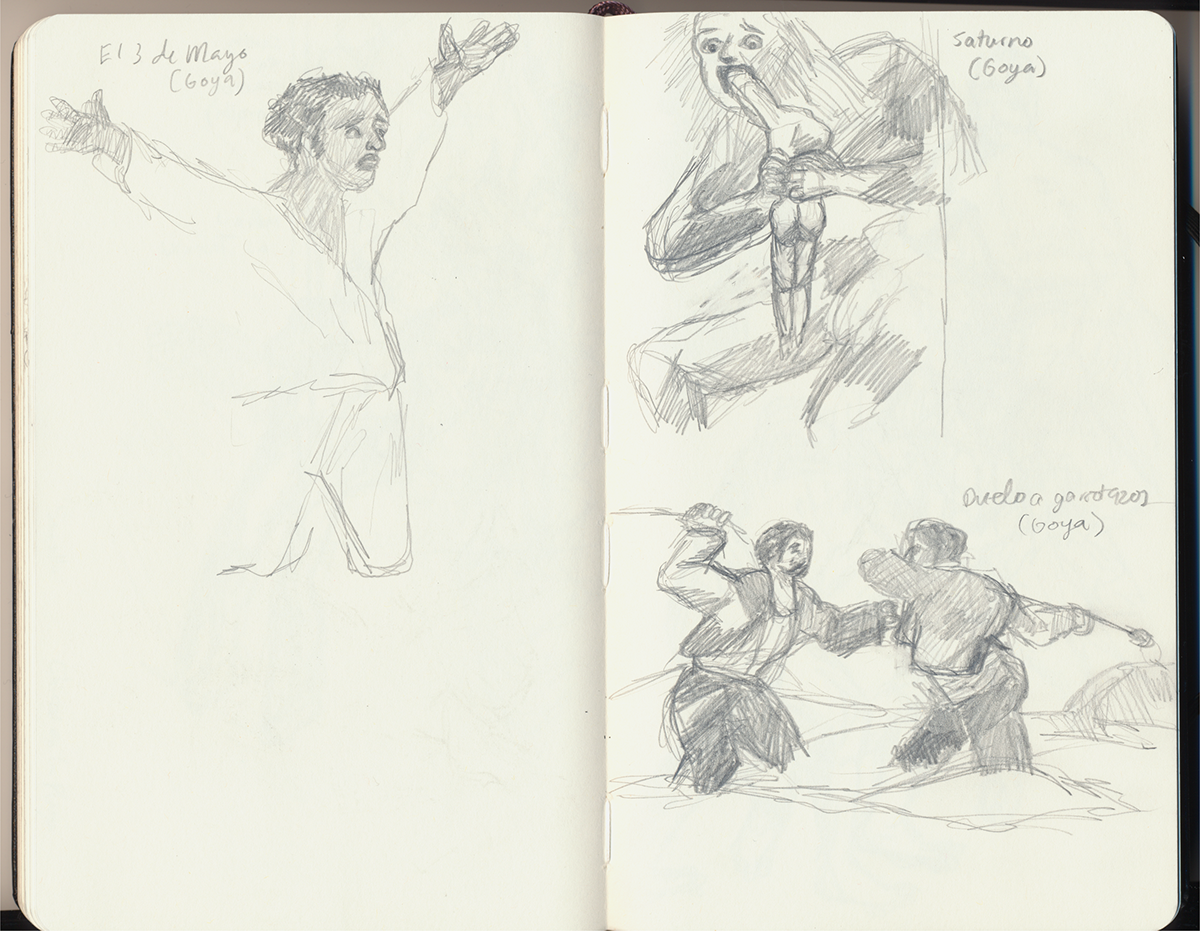 El 3 de Mayo
(Goya)
Saturno
(Goya)
Duelo a garrotazos
(Goya)